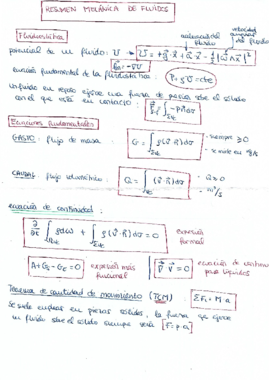 RESUMEN MECÁNICA DE FLUIDOS
Fluidostática
aceleración del fluido
velocidad angular del fluido
potencial de un fluido: U → U = +g·x + a·x - 1/2 |ω∧x|²
fm = -∇U
ecuación fundamental de la fluidostática: P + ρU = cte
un fluido en reposo ejerce una fuerza de presión sobre el sólido
con el que está en contacto: F = ∫ -p n dσ
Ecuaciones fundamentales
GASTO: flujo de masa: G = ∫ ρ(v·n)dσ
- siempre ≥ 0
- se mide en kg/s
CAUDAL: flujo volumétrico: Q = ∫ (v·n)dσ
- Q ≥ 0
- m³/s
ecuación de continuidad:
∂/∂t ∫ ρdω + ∫ ρ(v·n)dσ = 0
expresión formal
A + Gs - Ge = 0
expresión más funcional
∇·v = 0
ecuación de
para líquidos
Teorema de cantidad de movimiento (TCM)
ΣFi = M a
Se suele emplear en piezas sólidas, la fuerza que ejerce
un fluido sobre el sólido siempre será [F = p·a]